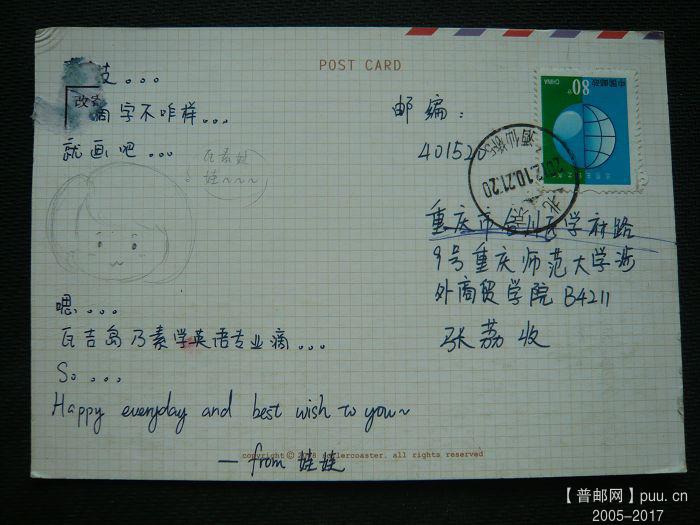 POST CARD
枝。。。
改
滴字不咋样。。。
就画吧。。。
瓦素娃
娃~~~
嗯。。。
瓦吉岛乃素学英语专业滴。。。
So 。。。
Happy everyday and best wish to you~
— from 娃娃
邮编:
401520
重庆市合川区学府路
9号重庆师范大学涉
外商贸学院 B4211
张荔 收
中国邮政
CHINA
80分
北京
2012.10.21.20
copyright © rollercoaster, all rights reserved
【普邮网】puu.cn
2005-2017